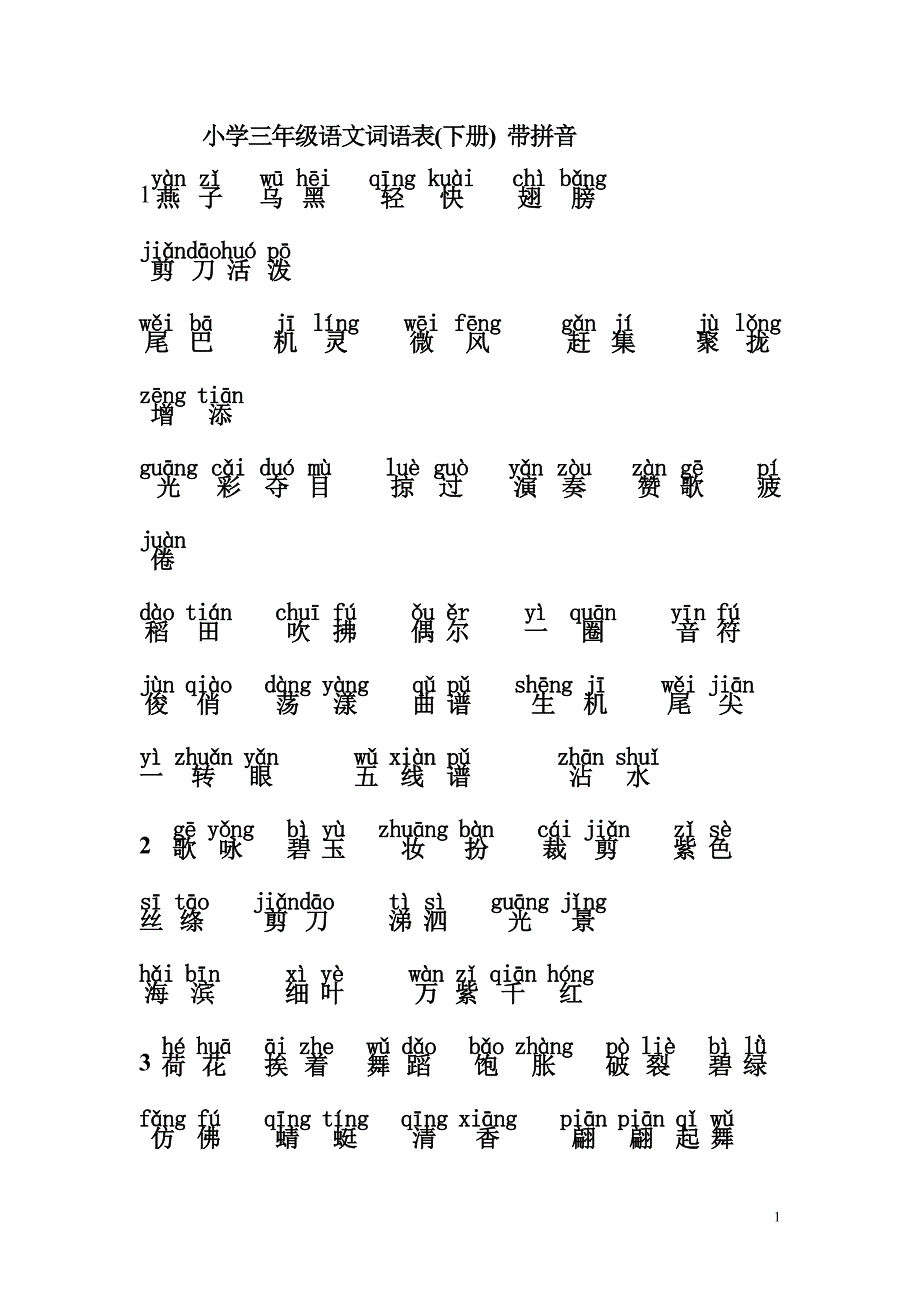 小学三年级语文词语表(下册) 带拼音
yàn zǐ wū hēi qīng kuài chì bǎng
1 燕 子 乌 黑 轻 快 翅 膀
jiǎndāohuó pō
剪 刀 活 泼
wěi bā jī líng wēi fēng gǎn jí jù lǒng
尾 巴 机 灵 微 风 赶 集 聚 拢
zēng tiān
增 添
guāng cǎi duó mù luè guò yǎn zòu zàn gē pí
光 彩 夺 目 掠 过 演 奏 赞 歌 疲
juàn
倦
dào tián chuī fú ǒu ěr yì quān yīn fú
稻 田 吹 拂 偶 尔 一 圈 音 符
jùn qiào dàng yàng qǔ pǔ shēng jī wěi jiān
俊 俏 荡 漾 曲 谱 生 机 尾 尖
yì zhuǎn yǎn wǔ xiàn pǔ zhān shuǐ
一 转 眼 五 线 谱 沾 水
gē yǒng bì yù zhuāng bàn cái jiǎn zǐ sè
2 歌 咏 碧 玉 妆 扮 裁 剪 紫 色
sī tāo jiǎndāo tì sì guāng jǐng
丝 绦 剪 刀 涕 泗 光 景
hǎi bīn xì yè wàn zǐ qiān hóng
海 滨 细 叶 万 紫 千 红
hé huā āi zhe wǔ dǎo bǎo zhàng pò liè bì lǜ
3 荷 花 挨 着 舞 蹈 饱 胀 破 裂 碧 绿
fǎng fú qīng tíng qīng xiāng piān piān qǐ wǔ
仿 佛 蜻 蜓 清 香 翩 翩 起 舞
1